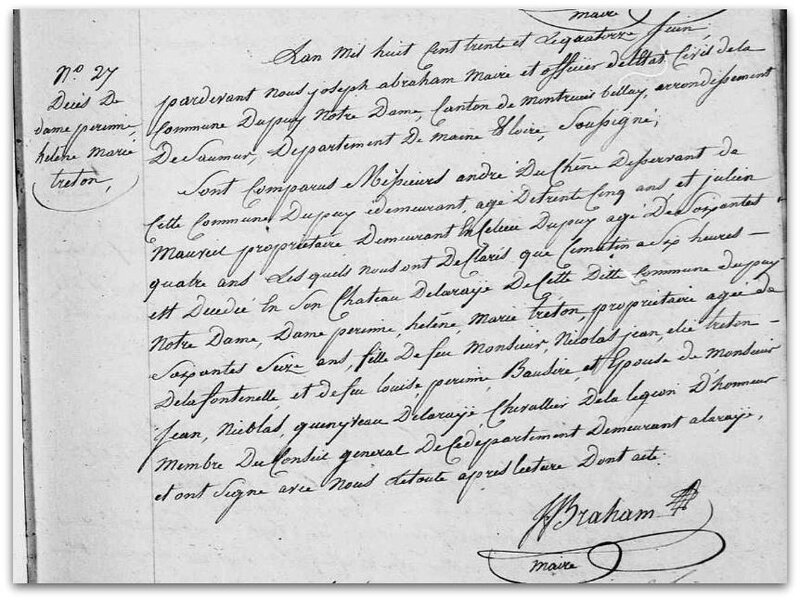 maire
N.o 27
Décès De
dame perinne,
hélène Marie
treton,
Lan mil huit Cent trente et Lequatorze Juin,
pardevant nous joseph abraham Maire et officier deletat Civil de la
Commune Dupuy Notre Dame, Canton de montreuil bellay, arrondissement
De Saumur, Departement De maine & loire, Soussigné;
Sont Comparus Messieurs andré Duchène Desservant de
Cette Commune Dupuy demeurant agé Detrent Cinq ans et julien
Mauxeil propriétaire Demeurant En Celieu Dupuy agé De Soixantes
quatre ans Les quels nous ont Déclarés que Cematin a Six heures
est Décédée En Son Chateau Delaraÿe De Cette Ditte Commune dupuy
Notre Dame, Dame perinne, hélène, Marie treton propriétaire agée de
Soixantes Seize ans, fille De feu Monsieur, Nicolas jean, elie treton
Delafontenelle, et defeu louise, perinne, Baudire, et Epouse de monsieur
Jean, Nicolas, quenyveau Delaraÿe, Chevallier Dela legion D'honneur
Membre Du Conseil general De Cedepartement Demeurant alaraÿe,
et ont Signé avec Nous Letoute apres lecture Dont acte.
JABraham
maire